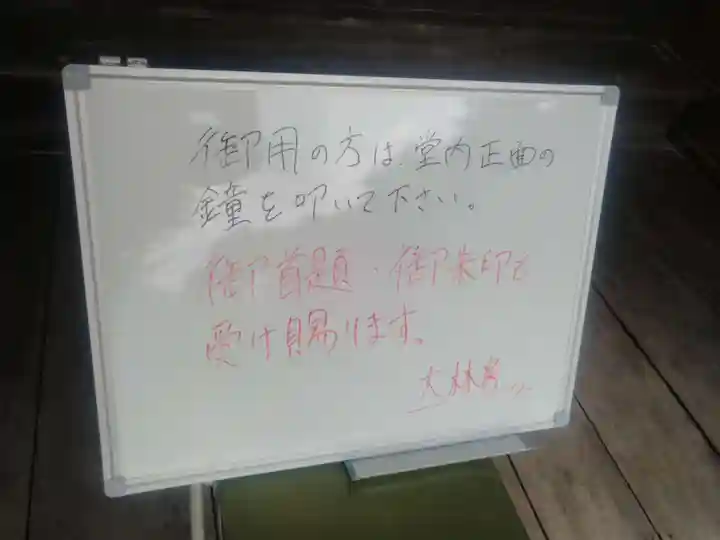 御用の方は、堂内正面の
鐘を叩いて下さい。
御首題・御朱印を
受け賜ります。
大林房